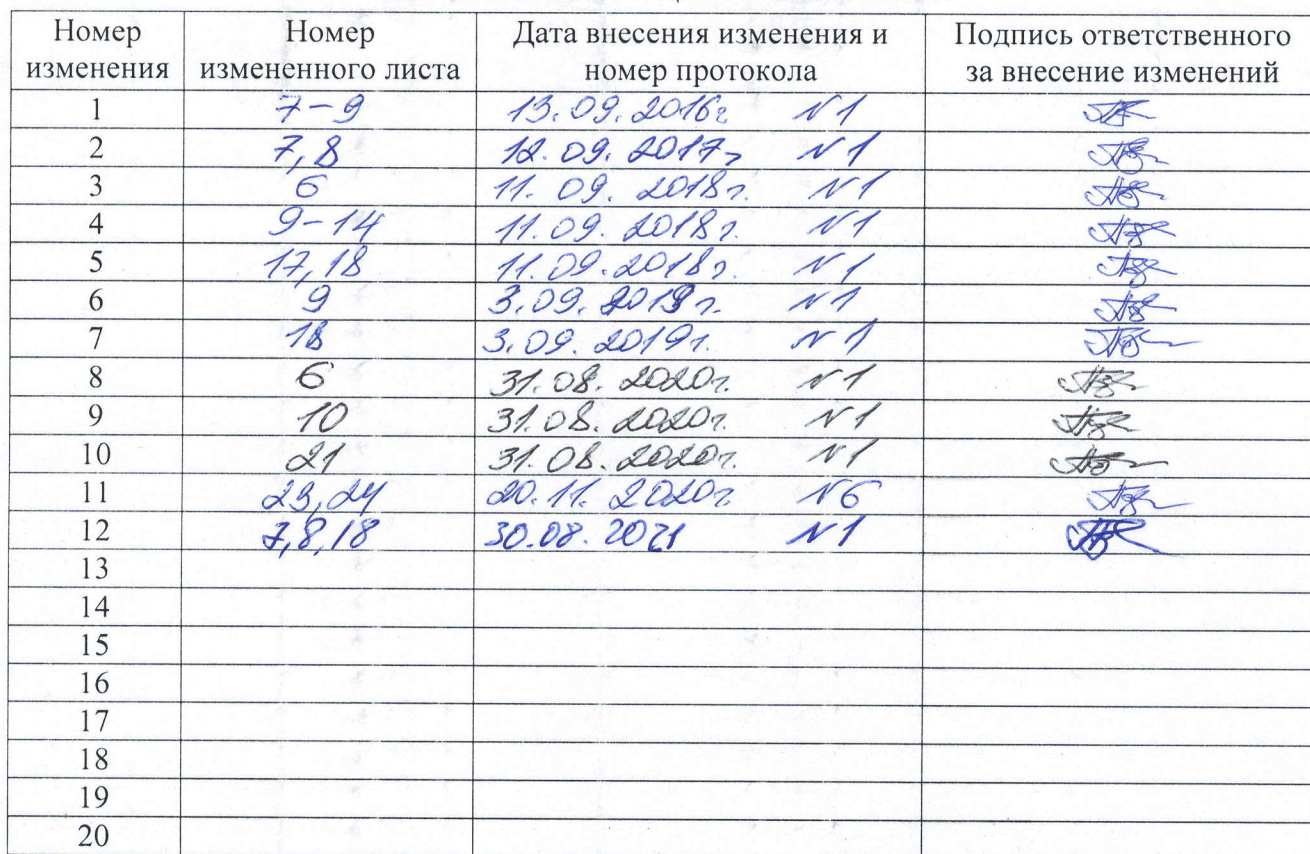 Номер изменения Номер измененного листа Дата внесения изменения и номер протокола Подпись ответственного за внесение изменений
1 7-9 13.09.2016г N1
2 7,8 12.09.2017г N1
3 6 11.09.2018г. N1
4 9-14 11.09.2018г. N1
5 17,18 11.09.2018г. N1
6 9 3.09.2019г. N1
7 18 3.09.2019г. N1
8 6 31.08.2020г. N1
9 10 31.08.2020г. N1
10 21 31.08.2020г. N1
11 23,24 20.11.2020г N6
12 7,8,18 30.08.2021 N1
13
14
15
16
17
18
19
20